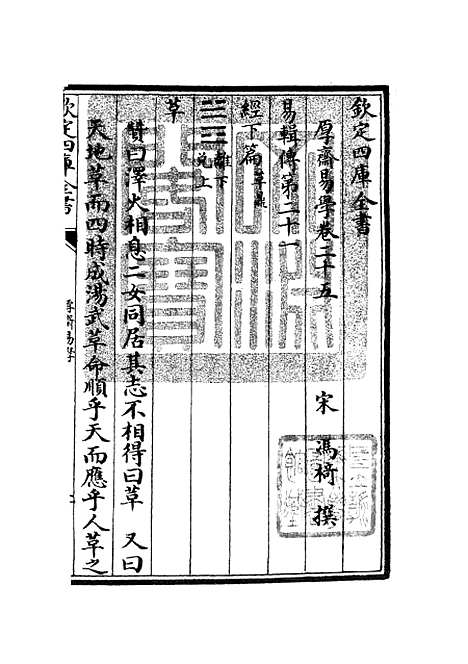 欽定四庫全書
厚齋易學卷二十五
宋 馮椅 撰
易輯傳第二十一
經下篇 革鼎
離下
兌上
革
贊曰澤火相息二女同居其志不相得曰革 又曰
天地革而四時成湯武革命順乎天而應乎人革之
欽定四庫全書
厚齋易學